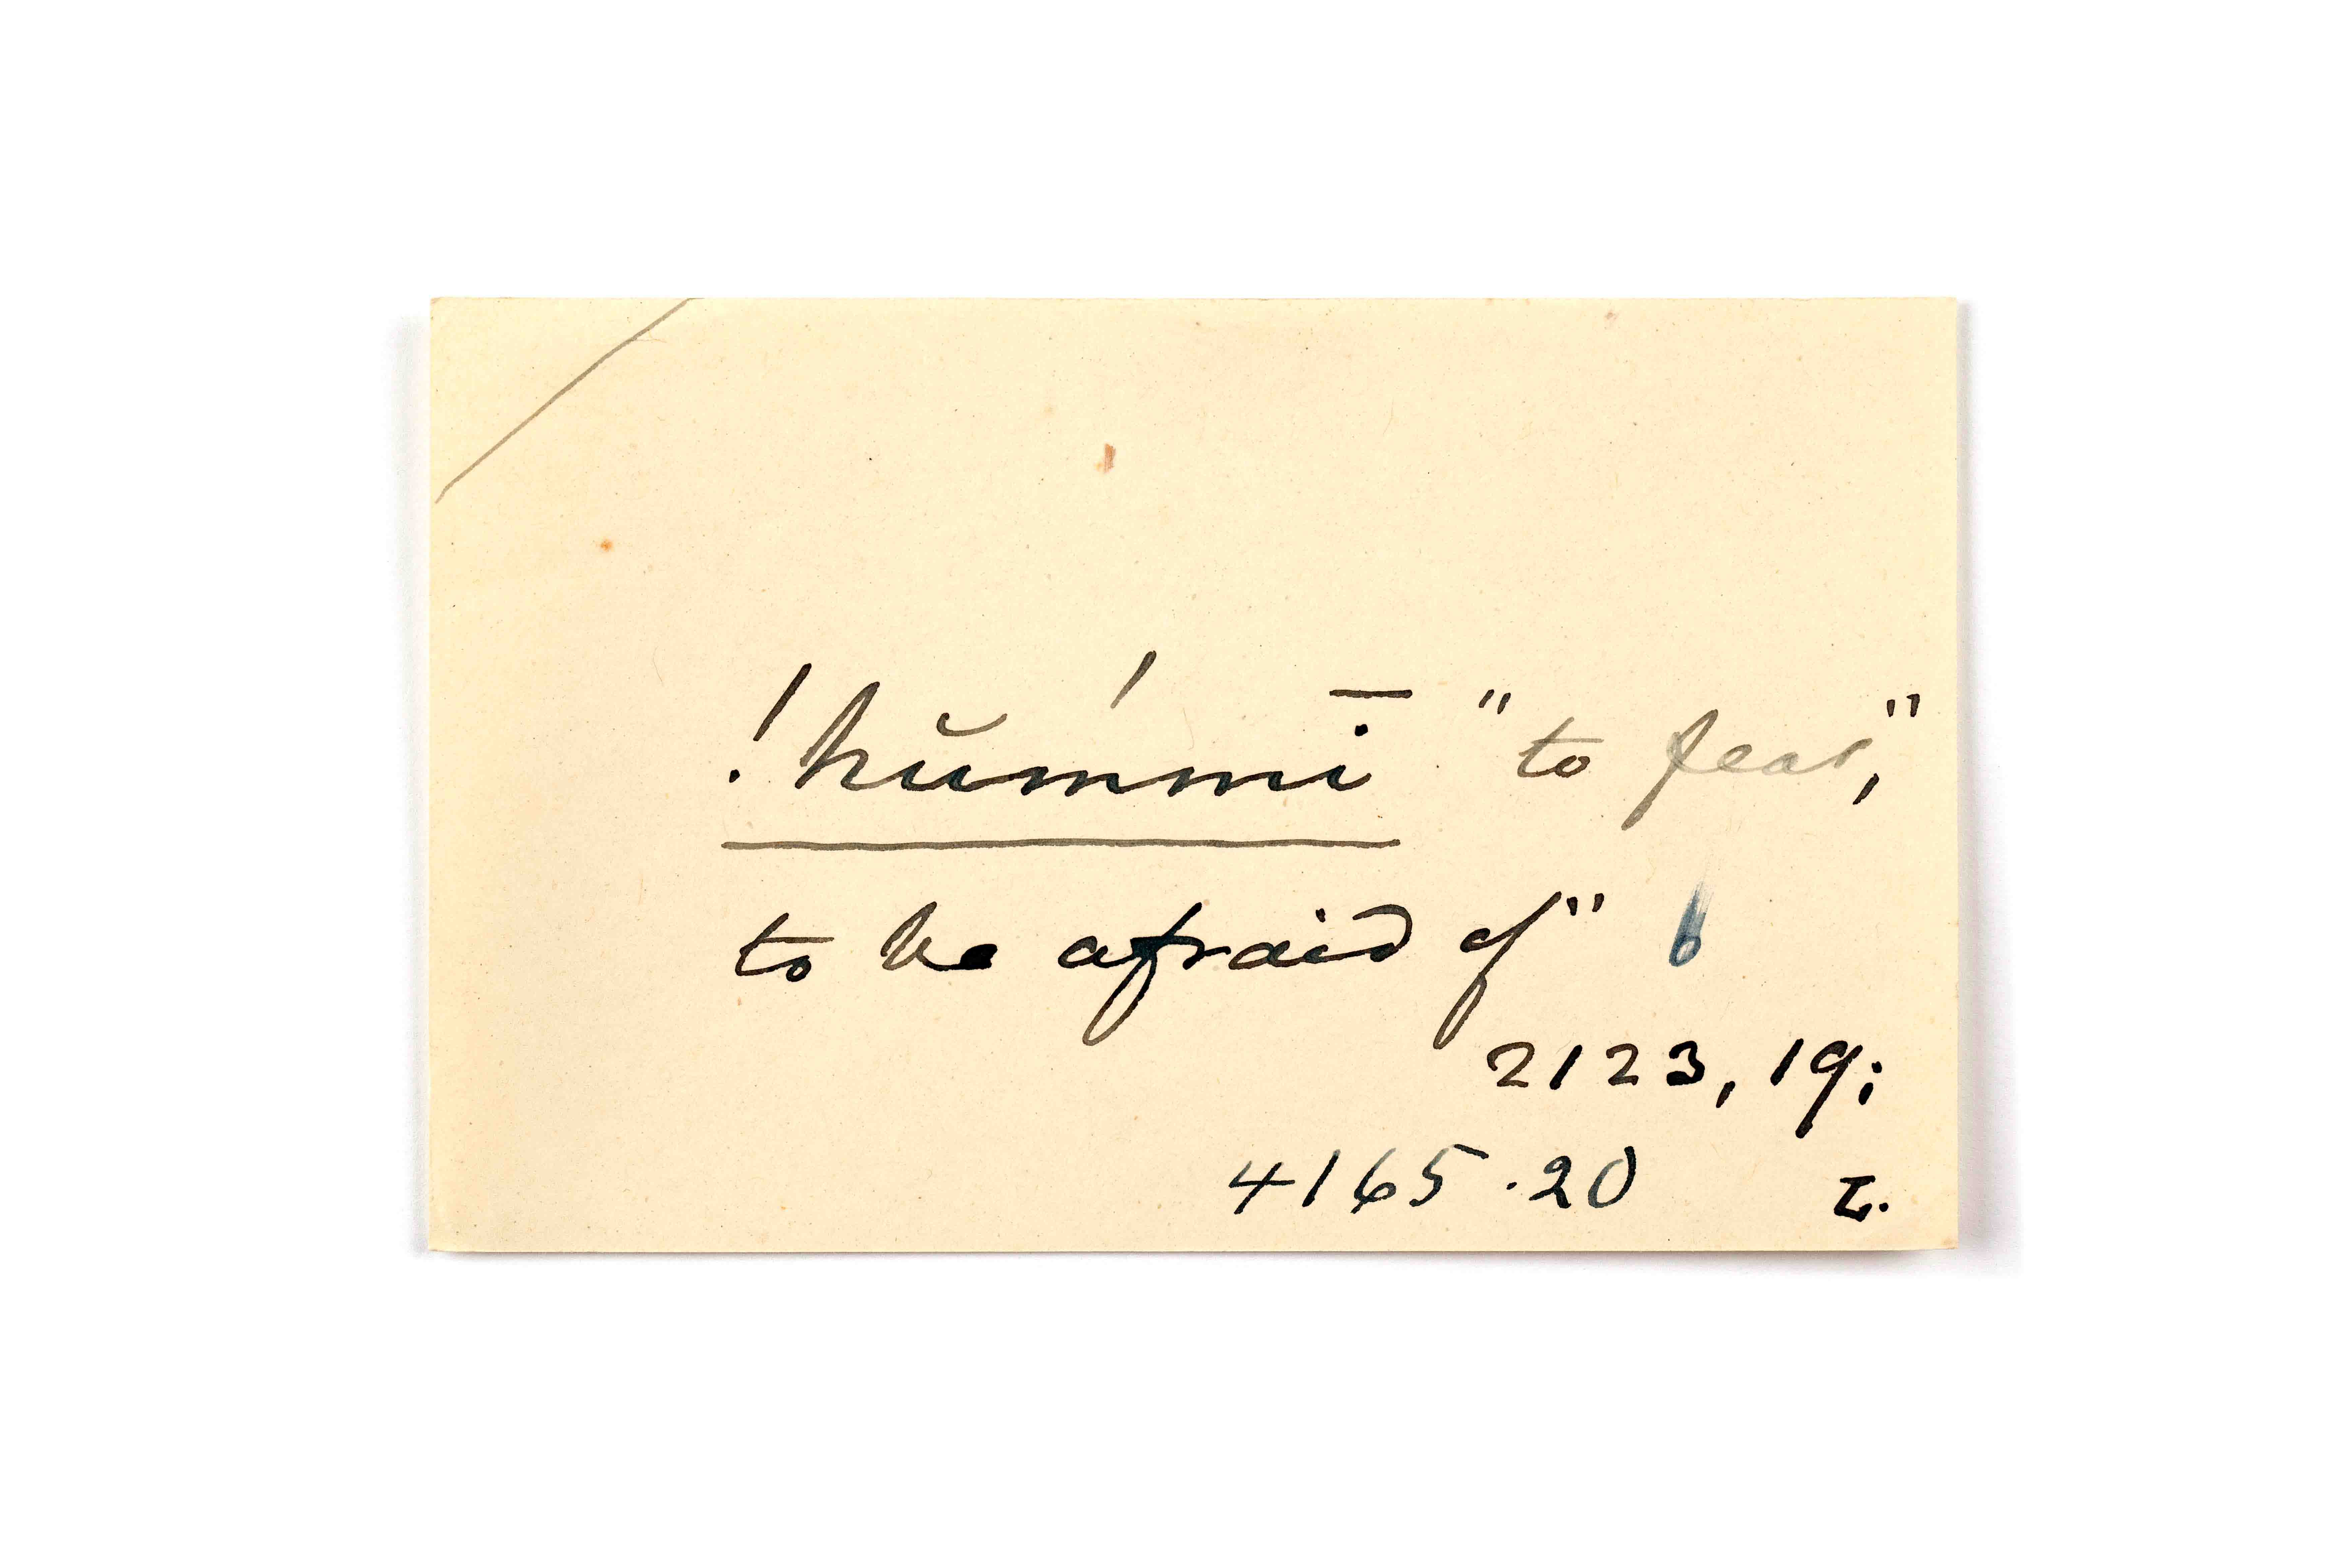 !hŭm´mī "to fear,"
to be afraid of"
2123, 19;
4165.20 L.